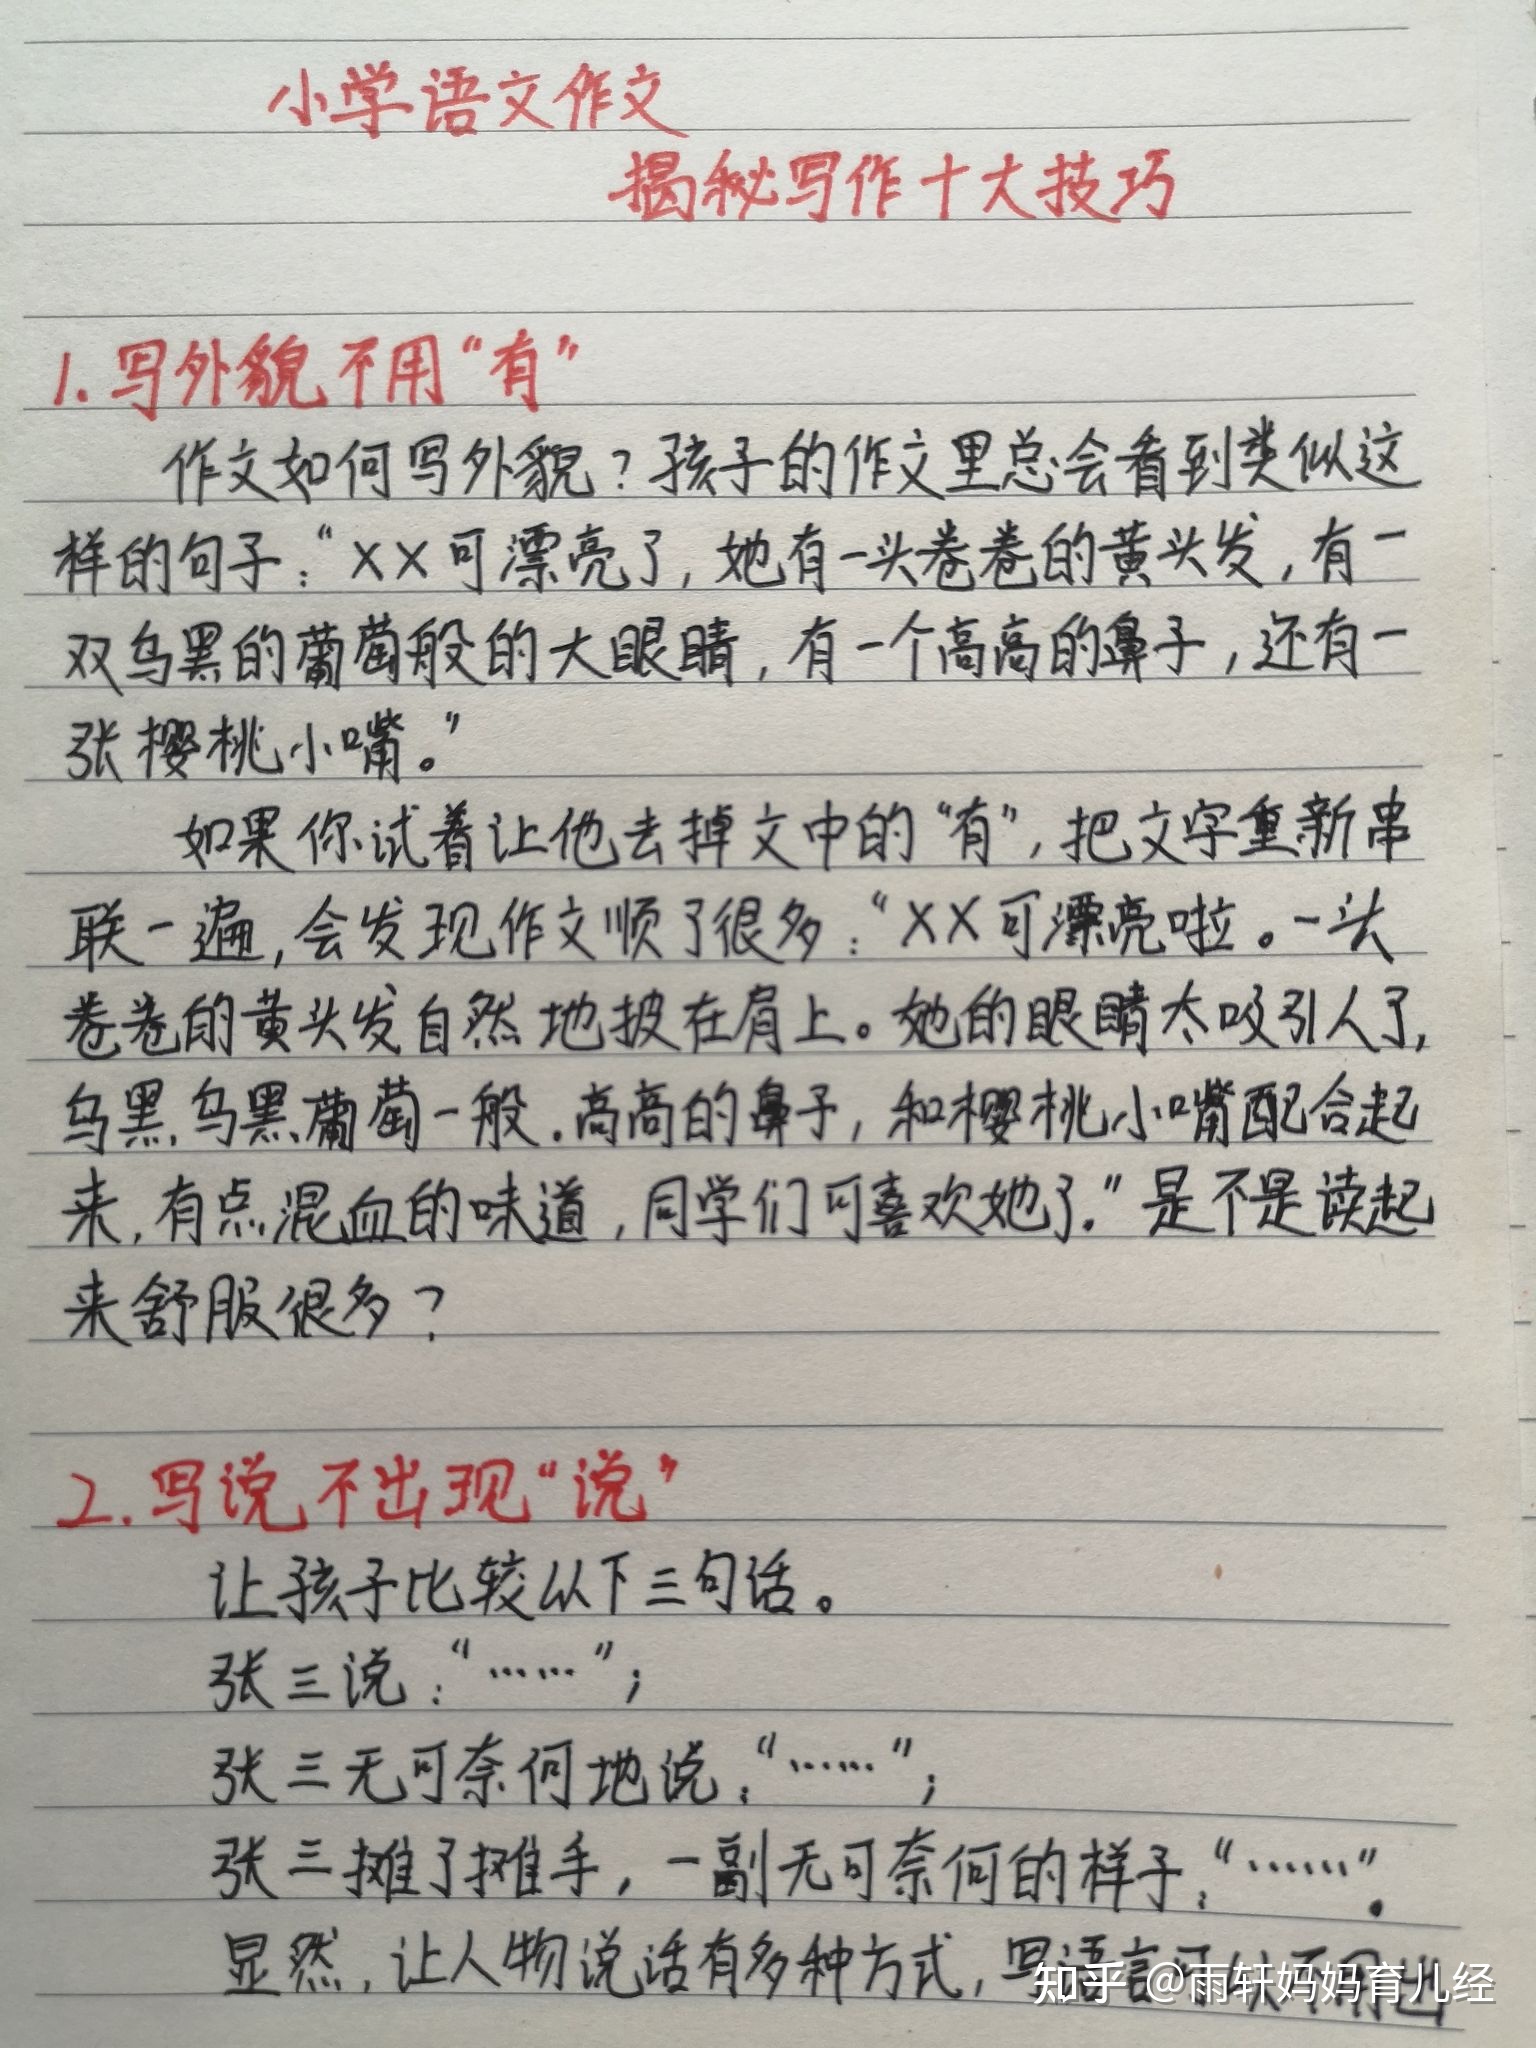 小学语文作文
揭秘写作十大技巧
1.写外貌不用“有”
作文如何写外貌?孩子的作文里总会看到类似这
样的句子:“××可漂亮了,她有一头卷卷的黄头发,有一
双乌黑的葡萄般的大眼睛,有一个高高的鼻子,还有一
张樱桃小嘴。”
如果你试着让他去掉文中的“有”,把文字重新串
联一遍,会发现作文顺了很多:“××可漂亮啦。一头
卷卷的黄头发自然地披在肩上。她的眼睛太吸引人了,
乌黑乌黑,葡萄一般。高高的鼻子,和樱桃小嘴配合起
来,有点混血的味道,同学们可喜欢她了。”是不是读起
来舒服很多?
2.写说不出现“说”
让孩子比较以下三句话。
张三说:“……”;
张三无可奈何地说:“……”;
张三摊了摊手,一副无可奈何的样子:“……”。
显然,让人物说话有多种方式,写语言
知乎 @雨轩妈妈育儿经